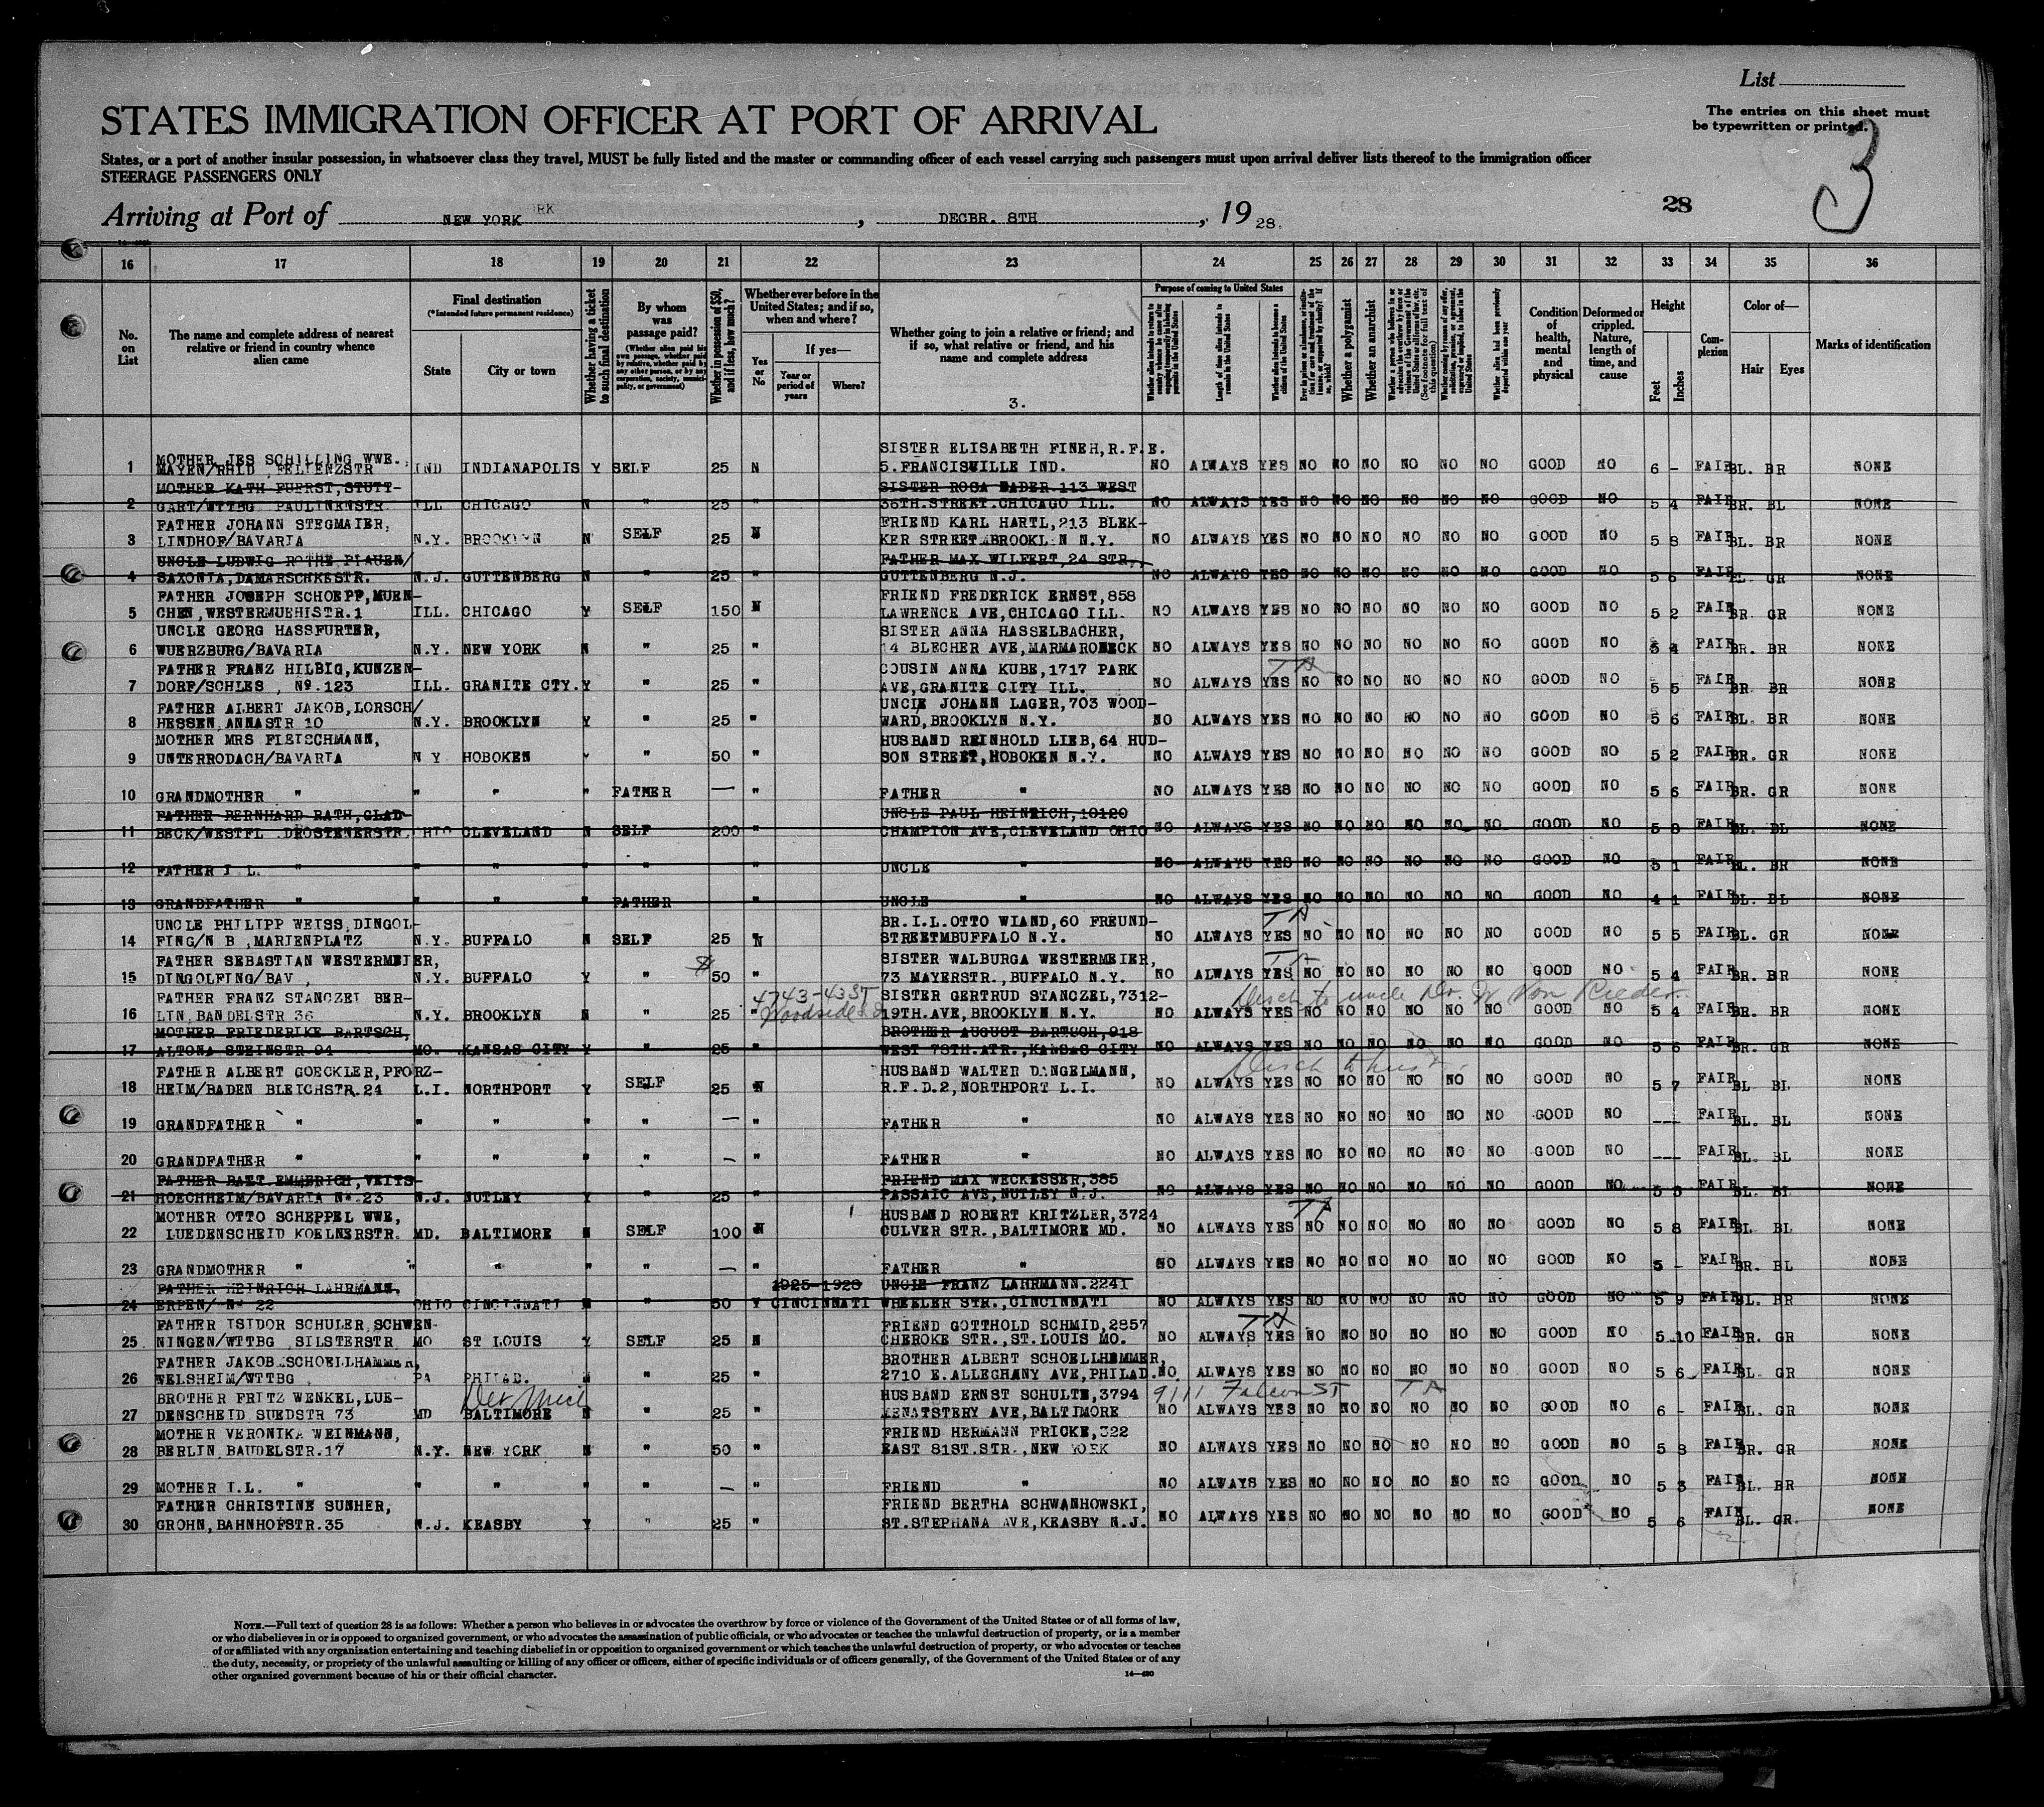 List
STATES IMMIGRATION OFFICER AT PORT OF ARRIVAL
The entries on this sheet must
be typewritten or printed.
3
States, or a port of another insular possession, in whatsoever class they travel, MUST be fully listed and the master or commanding officer of each vessel carrying such passengers must upon arrival deliver lists thereof to the immigration officer
STEERAGE PASSENGERS ONLY
Arriving at Port of NEW YORK, DECBR. 8TH, 1928.
28
16 17 18 19 20 21 22 23 24 25 26 27 28 29 30 31 32 33 34 35 36
No. on List
The name and complete address of nearest relative or friend in country whence alien came
Final destination
(*Intended future permanent residence)
State City or town
Whether having a ticket to such final destination
By whom was passage paid?
(Whether alien paid his own passage, whether paid by relative, whether paid by any other person, or by any corporation, society, municipality, or government)
Whether in possession of $50, and if less, how much?
Whether ever before in the United States; and if so, when and where?
Yes or No
If yes—
Year or period of years Where?
Whether going to join a relative or friend; and if so, what relative or friend, and his name and complete address
3.
Purpose of coming to United States
Length of time alien intends to remain in the United States
Whether a polygamist
Whether an anarchist
Condition of health, mental and physical
Deformed or crippled. Nature, length of time, and cause
Height
Feet Inches
Complexion
Color of—
Hair Eyes
Marks of identification
MOTHER JES SCHILLING WWE. SISTER ELISABETH FINEH, R.F.E.
1 MAYEN/RHLD FELIENZSTR IND INDIANAPOLIS Y SELF 25 N 5. FRANCISVILLE IND. NO ALWAYS YES NO NO NO NO NO NO GOOD NO 6 - FAIR BL. BR NONE
MOTHER KATH FUERST, STUTT- SISTER ROSA BADER 113 WEST
2 GART/WTTBG PAULINENSTR. ILL CHICAGO N " 25 " 36TH. STREET. CHICAGO ILL. NO ALWAYS YES NO NO NO NO NO NO GOOD NO 5 4 FAIR BR. BL NONE
FATHER JOHANN STEGMAIER, FRIEND KARL HARTL, 213 BLEK-
3 LINDHOF/BAVARIA N.Y. BROOKLYN N SELF 25 N KER STREET BROOKLYN N.Y. NO ALWAYS YES NO NO NO NO NO NO GOOD NO 5 8 FAIR BL. BR NONE
UNCLE LUDWIG ROTHE PLAUEN/ FATHER MAX WILFERT, 24 STR.,
4 SAXONIA, DAMARSCHKESTR. N.J. GUTTENBERG N " 25 " GUTTENBERG N.J. NO ALWAYS YES NO NO NO NO NO NO GOOD NO 5 6 FAIR GR NONE
FATHER JOSEPH SCHOEPP, MUEN- FRIEND FREDERICK ERNST, 858
5 CHEN, WESTERMUEHISTR. 1 ILL. CHICAGO Y SELF 150 N LAWRENCE AVE, CHICAGO ILL. NO ALWAYS YES NO NO NO NO NO NO GOOD NO 5 2 FAIR BR. GR NONE
UNCLE GEORG HASSFURTER, SISTER ANNA HASSELBACHER,
6 WUERZBURG/BAVARIA N.Y. NEW YORK N " 25 " 14 BLECHER AVE, MARMARONECK NO ALWAYS YES NO NO NO NO NO NO GOOD NO 5 4 FAIR BR. BR NONE
FATHER FRANZ HILBIG, KUNZEN- COUSIN ANNA KUBE, 1717 PARK TA
7 DORF/SCHLES, Nº. 123 ILL. GRANITE CTY. Y " 25 " AVE, GRANITE CITY ILL. NO ALWAYS YES NO NO NO NO NO NO GOOD NO 5 5 FAIR BR. BR NONE
FATHER ALBERT JAKOB, LORSCH/ UNCLE JOHANN LAGER, 703 WOOD-
8 HESSEN, ANNASTR 10 N.Y. BROOKLYN Y " 25 " WARD, BROOKLYN N.Y. NO ALWAYS YES NO NO NO NO NO NO GOOD NO 5 6 FAIR BL. BR NONE
MOTHER MRS FLEISCHMANN, HUSBAND REINHOLD LIEB, 64 HUD-
9 UNTERRODACH/BAVARIA N Y HOBOKEN Y " 50 " SON STREET, HOBOKEN N.Y. NO ALWAYS YES NO NO NO NO NO NO GOOD NO 5 2 FAIR BR. GR NONE
10 GRANDMOTHER " " " " FATHER — " FATHER " NO ALWAYS YES NO NO NO NO NO NO GOOD NO 5 6 FAIR BR. GR NONE
FATHER BERNHARD RATH, GLAD- UNCLE PAUL HEINRICH, 10120
11 BECK/WESTFL DROSTENERSTR. OHIO CLEVELAND N SELF 200 " CHAMPION AVE, CLEVELAND OHIO NO ALWAYS YES NO NO NO NO NO NO GOOD NO 5 8 FAIR BL. BL NONE
12 FATHER I L. " " " " " " UNCLE " NO ALWAYS YES NO NO NO NO NO NO GOOD NO 5 1 FAIR BL. BR NONE
13 GRANDFATHER " " " " FATHER " UNCLE " NO ALWAYS YES NO NO NO NO NO NO GOOD NO 4 1 FAIR BL. BL NONE
UNCLE PHILIPP WEISS, DINGOL- BR. I.L. OTTO WIAND, 60 FREUND- TA
14 FING/N B, MARIENPLATZ N.Y. BUFFALO N SELF 25 N STREETMBUFFALO N.Y. NO ALWAYS YES NO NO NO NO NO NO GOOD NO 5 5 FAIR BL. GR NONE
FATHER SEBASTIAN WESTERMEIER, SISTER WALBURGA WESTERMEIER, TA
15 DINGOLFING/BAV, N.Y. BUFFALO Y " $ 50 " 73 MAYERSTR., BUFFALO N.Y. NO ALWAYS YES NO NO NO NO NO NO GOOD NO 5 4 FAIR BR. BR NONE
FATHER FRANZ STANCZEL BER- 4743-43 ST SISTER GERTRUD STANCZEL, 7312- Disch to uncle Dr. W Von Rieder
16 LIN, BANDELSTR 36 N.Y. BROOKLYN N " 25 " Woodside 19TH. AVE, BROOKLYN N.Y. NO ALWAYS YES NO NO NO NO NO NO GOOD NO 5 4 FAIR BR. BR NONE
MOTHER FRIEDERIKE BARTSCH, BROTHER AUGUST BARTSCH, 918
17 ALTONA STEINSTR 94 MO. KANSAS CITY Y " 25 " WEST 78TH. ATR., KANSAS CITY NO ALWAYS YES NO NO NO NO NO NO GOOD NO 5 6 FAIR BR. GR NONE
FATHER ALBERT GOECKLER, PFORZ- HUSBAND WALTER DANGELMANN, Disch to hus
18 HEIM/BADEN BLEICHSTR. 24 L.I. NORTHPORT Y SELF 25 N R.F.D.2, NORTHPORT L.I. NO ALWAYS YES NO NO NO NO NO NO GOOD NO 5 7 FAIR BL BL NONE
19 GRANDFATHER " " " " " — " FATHER " NO ALWAYS YES NO NO NO NO NO NO GOOD NO --- FAIR BL. BL NONE
20 GRANDFATHER " " " " " — " FATHER " NO ALWAYS YES NO NO NO NO NO NO GOOD NO --- FAIR BL. BL NONE
FATHER BALT. EMMERICH, VEITS- FRIEND MAX WECKESSER, 385
21 HOECHHEIM/BAVARIA Nº 23 N.J. NUTLEY Y " 25 " PASSAIC AVE, NUTLEY N.J. NO ALWAYS YES NO NO NO NO NO NO GOOD NO 5 5 FAIR BL. BL NONE
MOTHER OTTO SCHEPPEL WWE, HUSBAND ROBERT KRITZLER, 3724 TA
22 LUEDENSCHEID KOELNERSTR. MD. BALTIMORE N SELF 100 N CULVER STR., BALTIMORE MD. NO ALWAYS YES NO NO NO NO NO NO GOOD NO 5 8 FAIR BL BL NONE
23 GRANDMOTHER " " " " " — " FATHER " NO ALWAYS YES NO NO NO NO NO NO GOOD NO 5 - FAIR BR. BL NONE
FATHER HEINRICH LAHRMANN, 1925-1928 UNCLE FRANZ LAHRMANN. 2241
24 ERPEN/ Nº 22 OHIO CINCINNATI N " 50 Y CINCINNATI WHEELER STR., CINCINNATI NO ALWAYS YES NO NO NO NO NO NO GOOD NO 5 9 FAIR BL. BR NONE
FATHER ISIDOR SCHULER, SCHWEN- FRIEND GOTTHOLD SCHMID, 2857 TA
25 NINGEN/WTTBG SILSTERSTR MO ST LOUIS Y SELF 25 N CHEROKE STR., ST. LOUIS MO. NO ALWAYS YES NO NO NO NO NO NO GOOD NO 5 10 FAIR BR. GR NONE
FATHER JAKOB SCHOELLHAMMER, BROTHER ALBERT SCHOELLHEMMER,
26 WELSHEIM/WTTBG PA PHILAD. N " 25 " 2710 E. ALLEGHANY AVE, PHILAD. NO ALWAYS YES NO NO NO NO NO NO GOOD NO 5 6 FAIR BL. GR NONE
BROTHER FRITZ WENKEL, LUE- Det Mich HUSBAND ERNST SCHULTE, 3794 9111 Falcon ST TA
27 DENSCHEID SUEDSTR 73 MD BALTIMORE N " 25 " KENATSTERY AVE, BALTIMORE NO ALWAYS YES NO NO NO NO NO NO GOOD NO 6 - FAIR BL. GR NONE
MOTHER VERONIKA WEINMANN, FRIEND HERMANN FRICKE, 322
28 BERLIN, BAUDELSTR. 17 N.Y. NEW YORK N " 50 " EAST 81ST. STR., NEW YORK NO ALWAYS YES NO NO NO NO NO NO GOOD NO 5 8 FAIR BR. GR NONE
29 MOTHER I.L. " " " " " — " FRIEND " NO ALWAYS YES NO NO NO NO NO NO GOOD NO 5 3 FAIR BL. BR NONE
FATHER CHRISTINE SUNHER, FRIEND BERTHA SCHWANHOWSKI,
30 GROHN, BAHNHOFSTR. 35 N.J. KEASBY Y " 25 " ST. STEPHANA AVE, KEASBY N.J. NO ALWAYS YES NO NO NO NO NO NO GOOD NO 5 6 FAIR BL. GR. NONE
NOTE.—Full text of question 28 is as follows: Whether a person who believes in or advocates the overthrow by force or violence of the Government of the United States or of all forms of law,
or who disbelieves in or is opposed to organized government, or who advocates the assassination of public officials, or who advocates or teaches the unlawful destruction of property, or is a member
of or affiliated with any organization entertaining and teaching disbelief in or opposition to organized government or which teaches the unlawful destruction of property, or who advocates or teaches
the duty, necessity, or propriety of the unlawful assaulting or killing of any officer or officers, either of specific individuals or of officers generally, of the Government of the United States or of any
other organized government because of his or their official character.
14—490